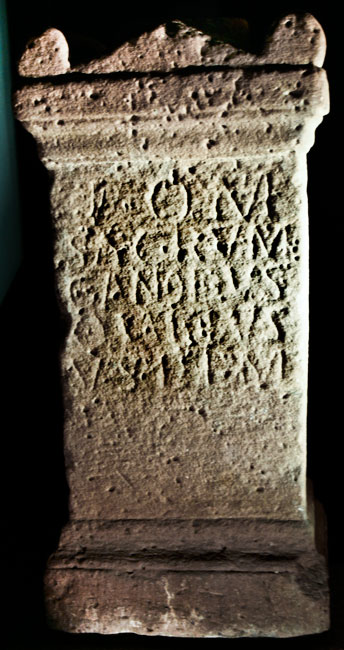 I O M
SACRVM
CANDIDVS
VS
V S L L M